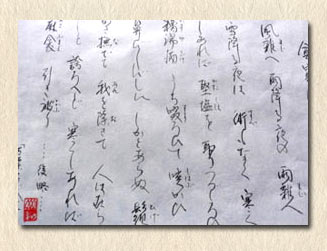 風雑へ 雨降る夜の 雨雑へ
雪降る夜は 術もなく 寒く
しあれば 堅塩を 取りつづ
糟湯酒 うち啜ろひて 咳かひ
鼻びしびしに しかとあらぬ 髭
かき撫でて 我を除きて 人は在ら
じと 誇ろへど 寒くしあれば
麻衾 引き被り …… 後略